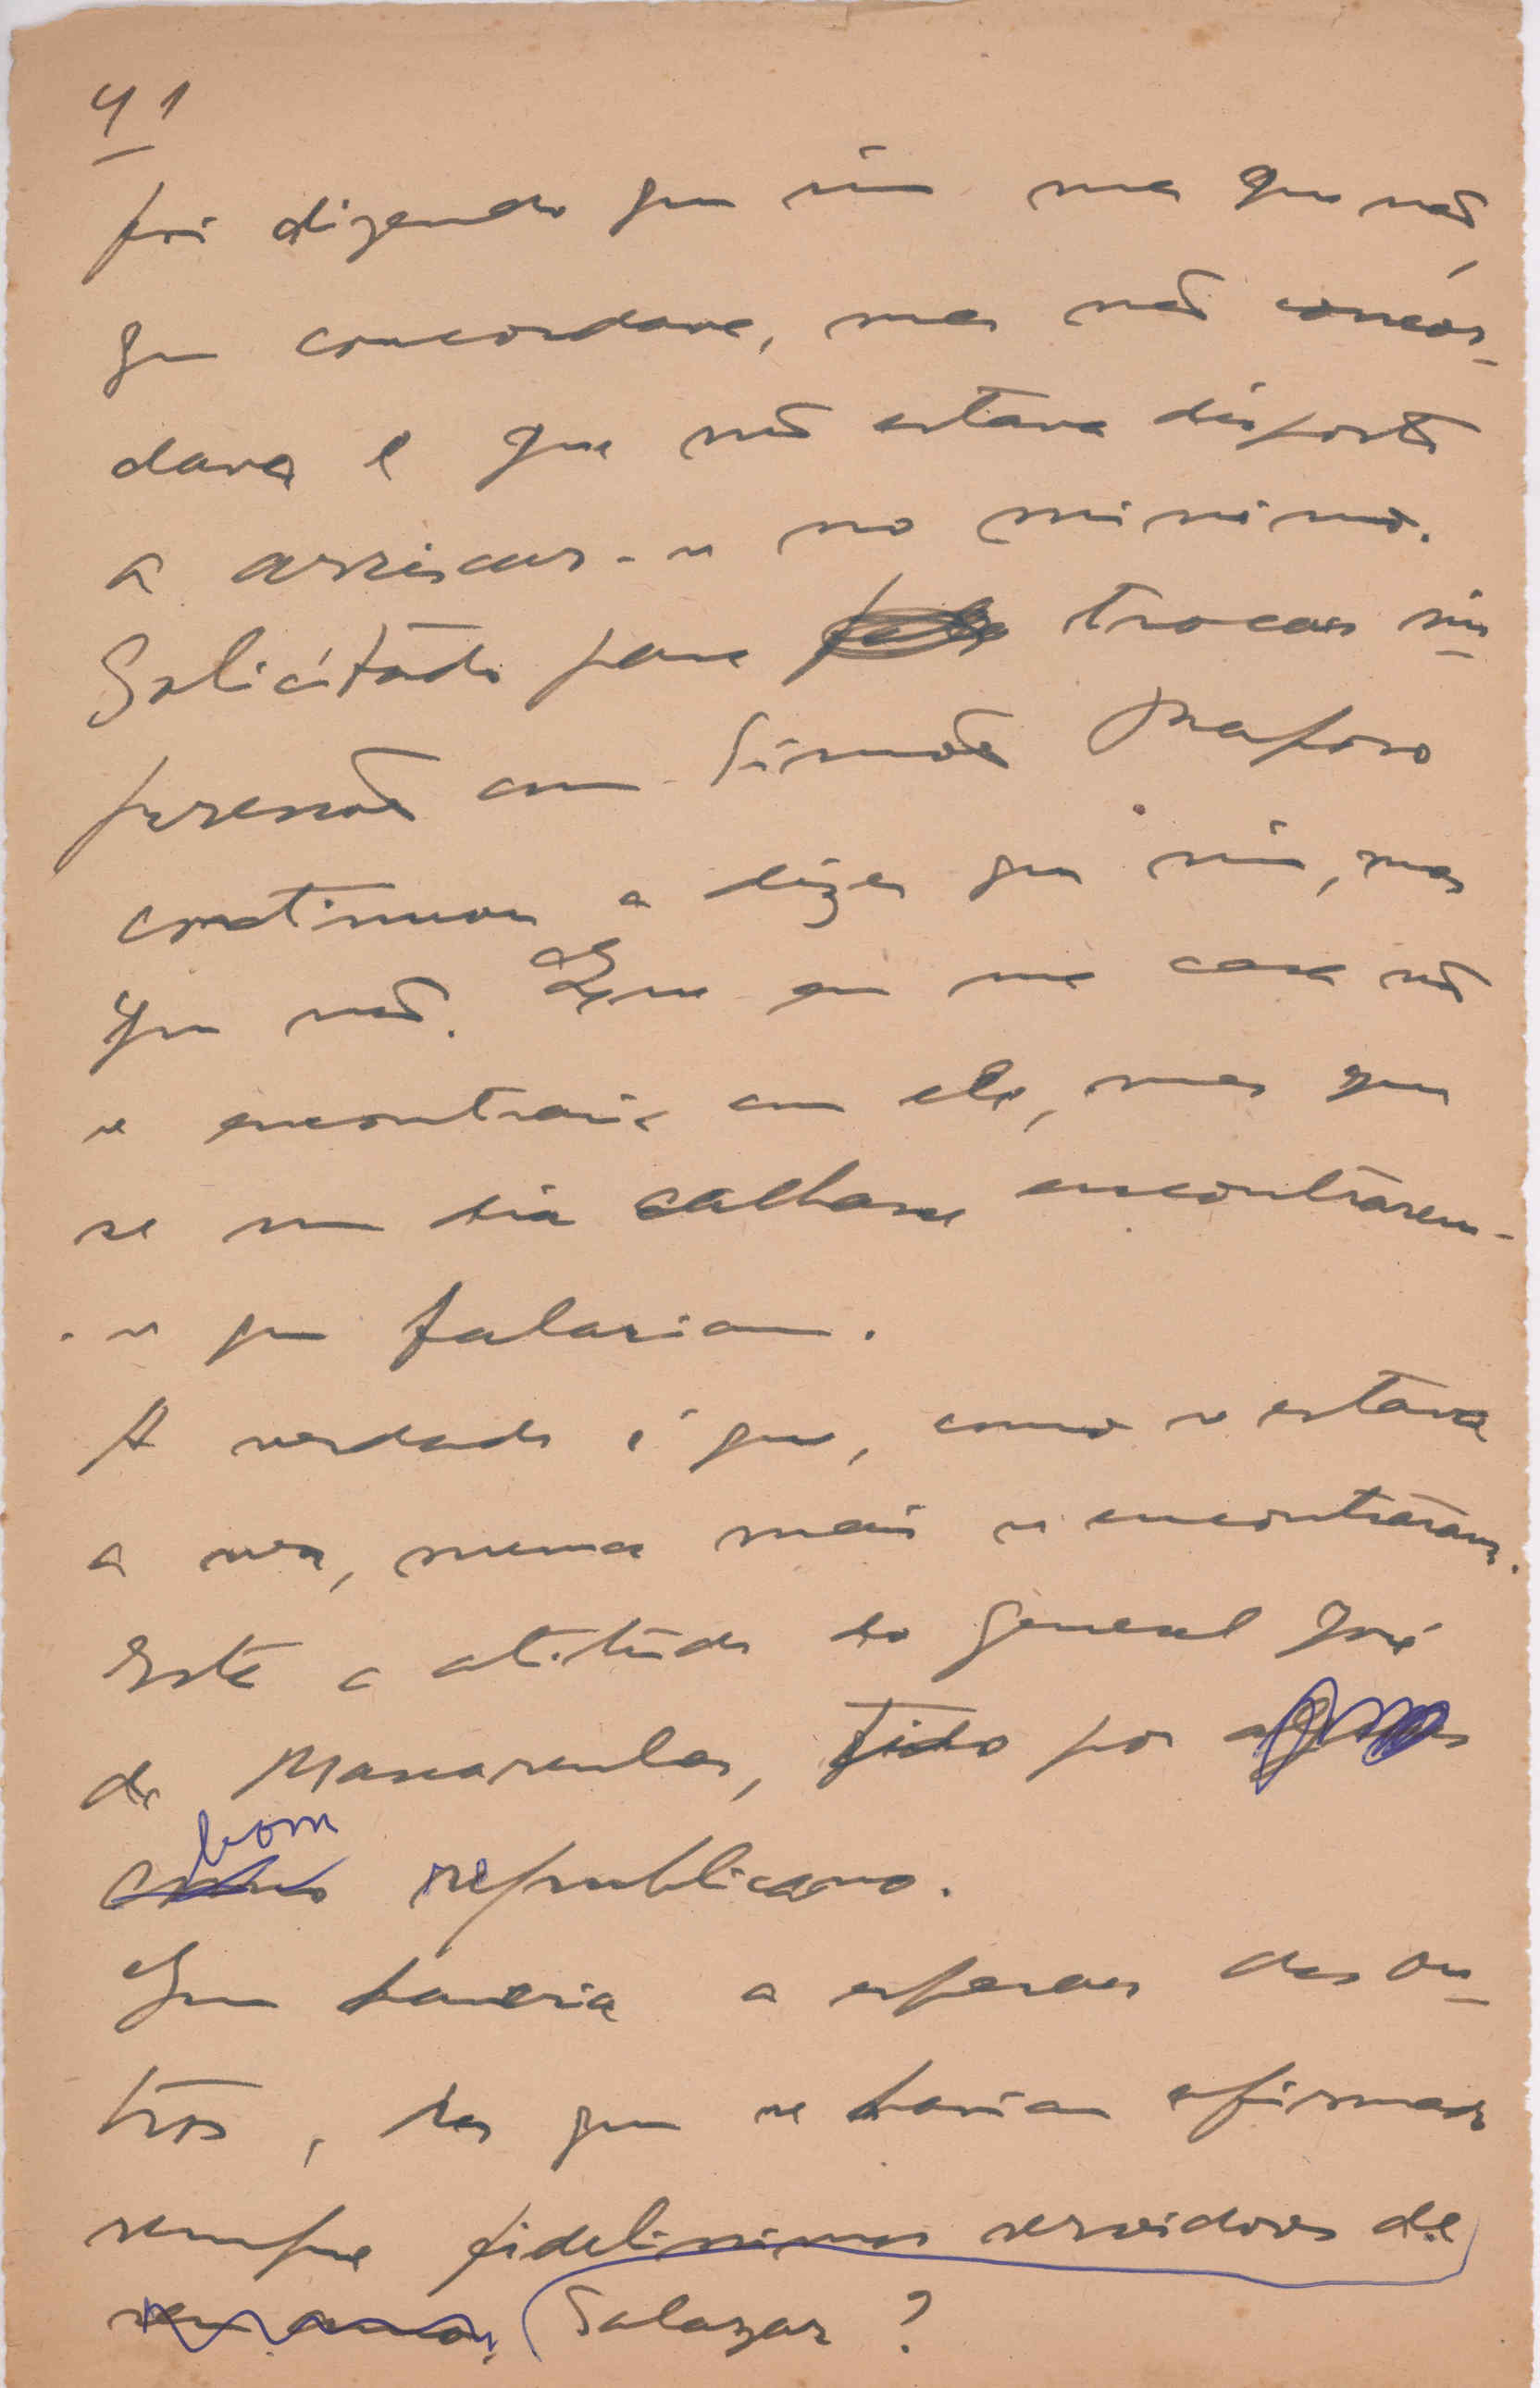 41
foi dizendo que sim mas que não,
que concordava, mas não concor-
dava e que não estava disposto
a arriscar-se no minimo.
Solicitado para trocar im-
pressões com Simões Raposo
continuou a dizer que sim, mas
que não. Que em casa não
se encontraria com ele, mas que
se um dia calhasse encontrarem-
-se que falariam.
A verdade é que, como se estava
a ver, nunca mais se encontraram.
Esta a atitude do general José
de Mascarenhas, tido por
bom
republicano.
Que haveria a esperar dos ou-
tros, dos que se haviam afirmado
sempre fidelissimos servidores de
Salazar?